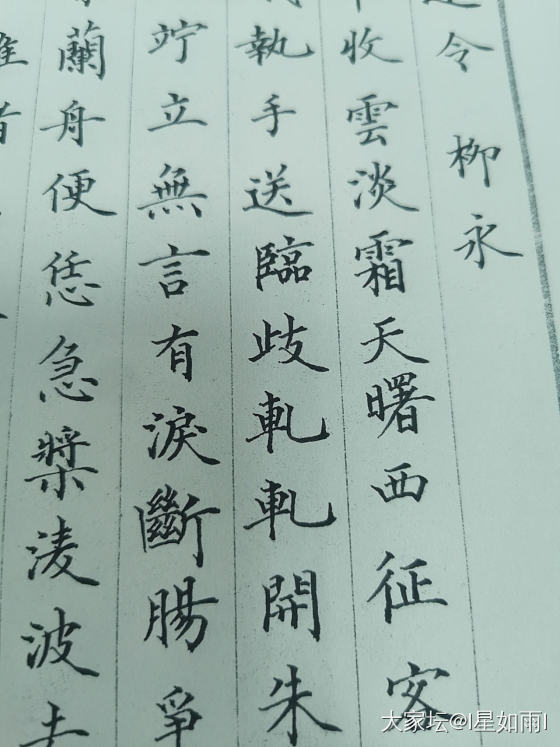 令 柳永
收雲淡霜天曙西征客
執手送臨歧軋軋開朱
竚立無言有淚斷腸爭
蘭舟便恁急槳淩波去
大家坛@I星如雨I